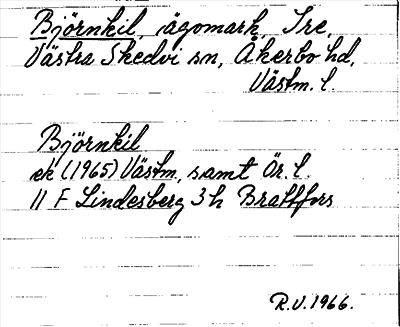 Björnkil, ägomark, Tre,
Västra Skedvi sn, Åkerbo hd,
Västm. l.
Björnkil
ek (1965) Västm, samt Ör. l.
11 F Lindesberg 3 h Bratfors
R.V. 1966.